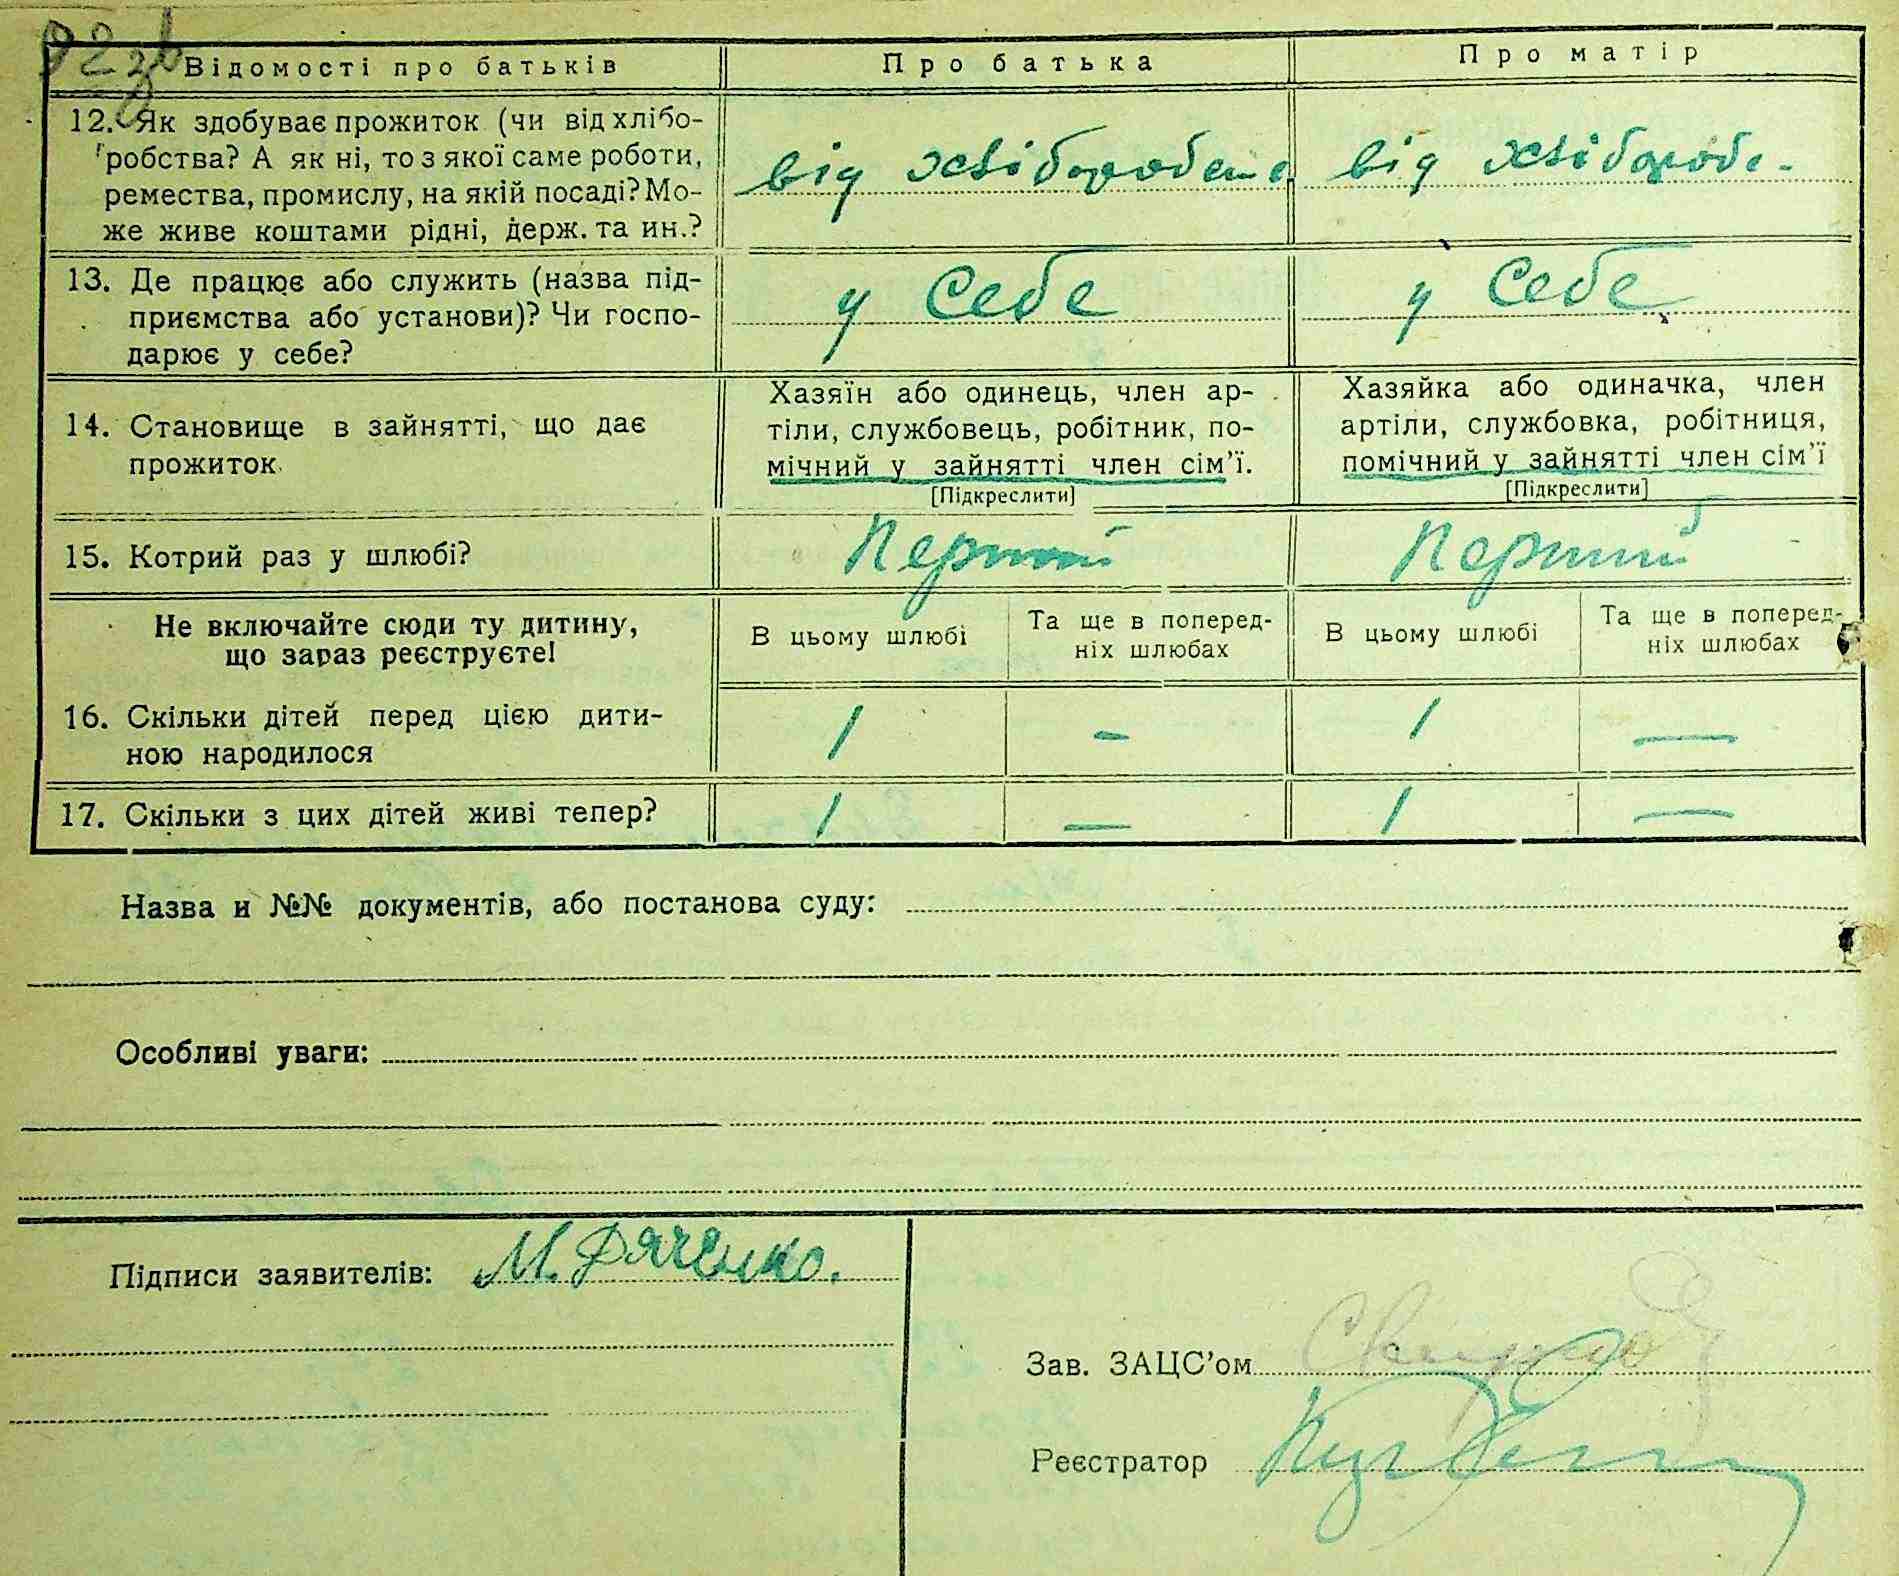 92 зв
Відомості про батьків Про батька Про матір
12. Як здобуває прожиток (чи від хлібо-
робства? А як ні, то з якої саме роботи,
ремества, промислу, на якій посаді? Мо-
же живе коштами рідні, держ. та ин.?
від хліборобства від хлібороб.
13. Де працює або служить (назва під-
приємства або установи)? Чи госпо-
дарює у себе?
у себе у себе
14. Становище в зайнятті, що дає
прожиток
Хазяїн або одинець, член ар-
тіли, службовець, робітник, по-
мічний у зайнятті член сім'ї.
[Підкреслити]
Хазяйка або одиначка, член
артіли, службовка, робітниця,
помічний у зайнятті член сім'ї
[Підкреслити]
15. Котрий раз у шлюбі? Перший Перший
Не включайте сюди ту дитину,
що зараз реєструєте!
В цьому шлюбі Та ще в поперед-
ніх шлюбах В цьому шлюбі Та ще в поперед-
ніх шлюбах
16. Скільки дітей перед цією дити-
ною народилося
1 – 1 —
17. Скільки з цих дітей живі тепер? 1 — 1 —
Назва и №№ документів, або постанова суду:
Особливі уваги:
Підписи заявителів: М. Дяченко.
Зав. ЗАЦС'ом
Реєстратор